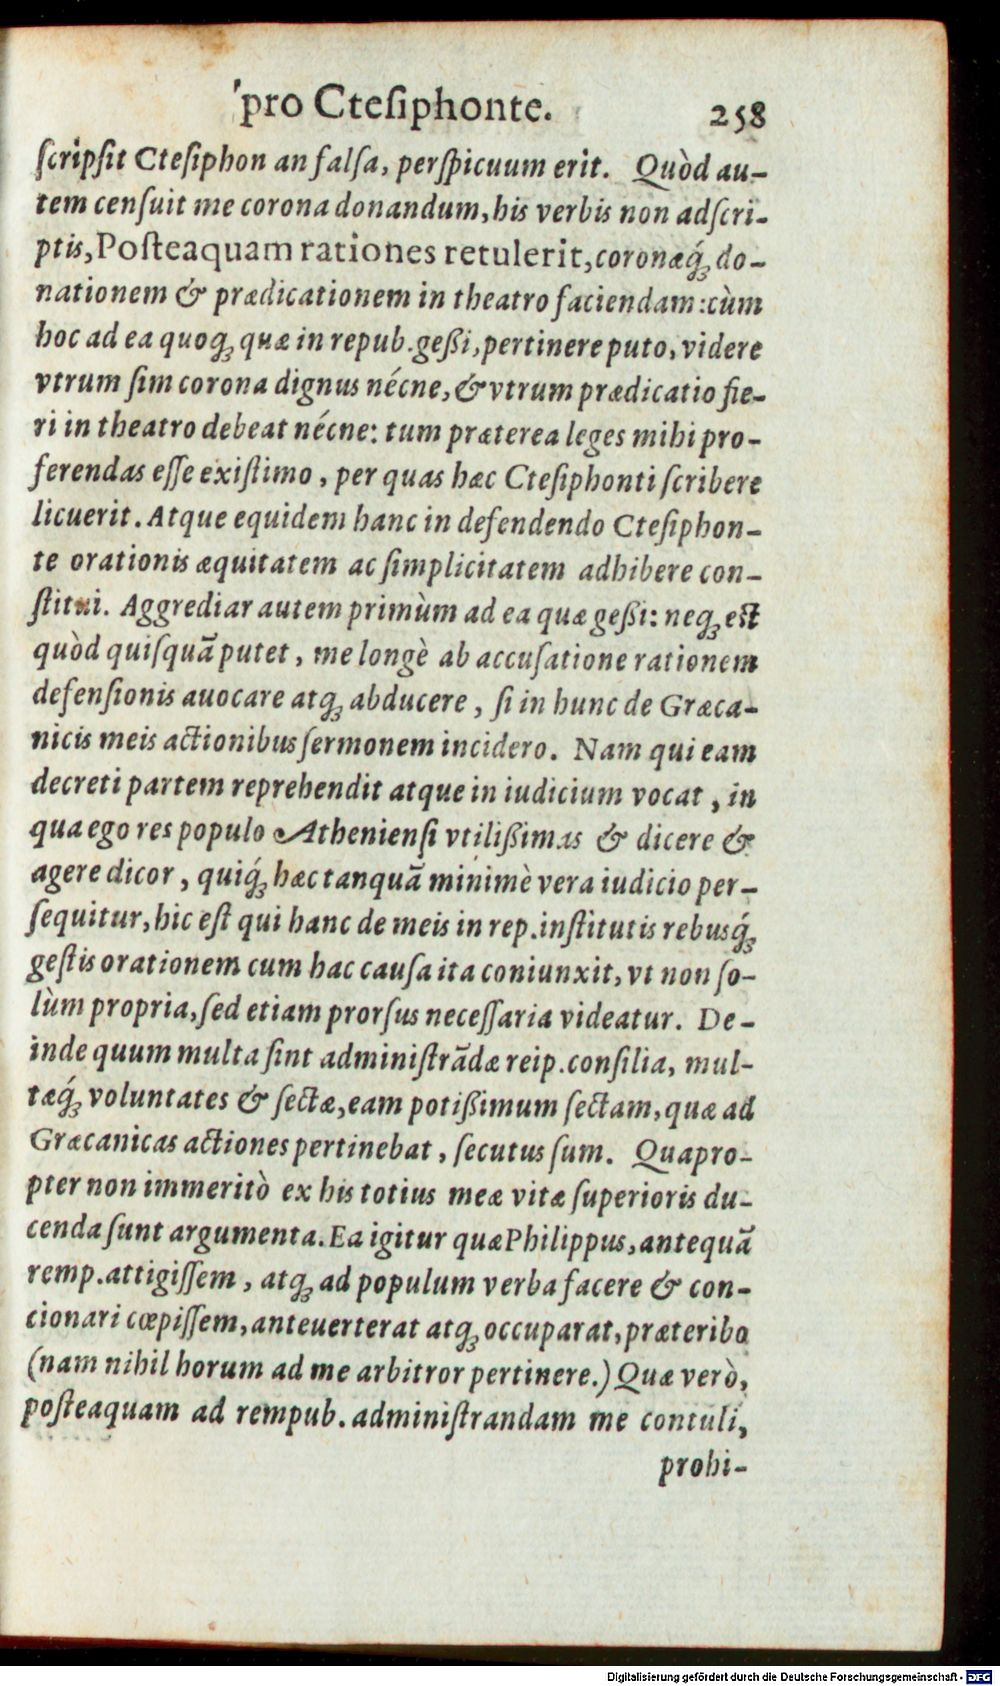 pro Cteſiphonte.
258
ſcripſit Cteſiphon an falſa, perſpicuum erit. Quòd au-
tem cenſuit me corona donandum, his verbis non adſcri-
ptis, Poſteaquam rationes retulerit, coronæq́; do-
nationem & prædicationem in theatro faciendam: cùm
hoc ad ea quoq; quæ in repub. geßi, pertinere puto, videre
vtrum ſim corona dignus nécne, & vtrum prædicatio fie-
ri in theatro debeat nécne: tum præterea leges mihi pro-
ferendas eſſe exiſtimo, per quas hæc Cteſiphonti ſcribere
licuerit. Atque equidem hanc in defendendo Cteſiphon-
te orationis æquitatem ac ſimplicitatem adhibere con-
ſtitui. Aggrediar autem primùm ad ea quæ geßi: neq; eſt
quòd quiſquã putet, me longè ab accuſatione rationem
defenſionis auocare atq; abducere, ſi in hunc de Græca-
nicis meis actionibus ſermonem incidero. Nam qui eam
decreti partem reprehendit atque in iudicium vocat, in
qua ego res populo Athenienſi vtilißimas & dicere &
agere dicor, quiq́; hæc tanquã minimè vera iudicio per-
ſequitur, hic eſt qui hanc de meis in rep. inſtitutis rebusq́;
geſtis orationem cum hac cauſa ita coniunxit, vt non ſo-
lùm propria, ſed etiam prorſus neceſſaria videatur. De-
inde quum multa ſint adminiſtrãdæ reip. conſilia, mul-
tæq́; voluntates & ſectæ, eam potißimum ſectam, quæ ad
Græcanicas actiones pertinebat, ſecutus ſum. Quapro-
pter non immeritò ex his totius meæ vitæ ſuperioris du-
cenda ſunt argumenta. Ea igitur quæ Philippus, antequã
remp. attigiſſem, atq; ad populum verba facere & con-
cionari cœpiſſem, anteuerterat atq; occuparat, præteribo
(nam nihil horum ad me arbitror pertinere.) Quæ verò,
poſteaquam ad rempub. adminiſtrandam me contuli,
prohi-
Digitalisierung gefördert durch die Deutsche Forschungsgemeinschaft - DFG